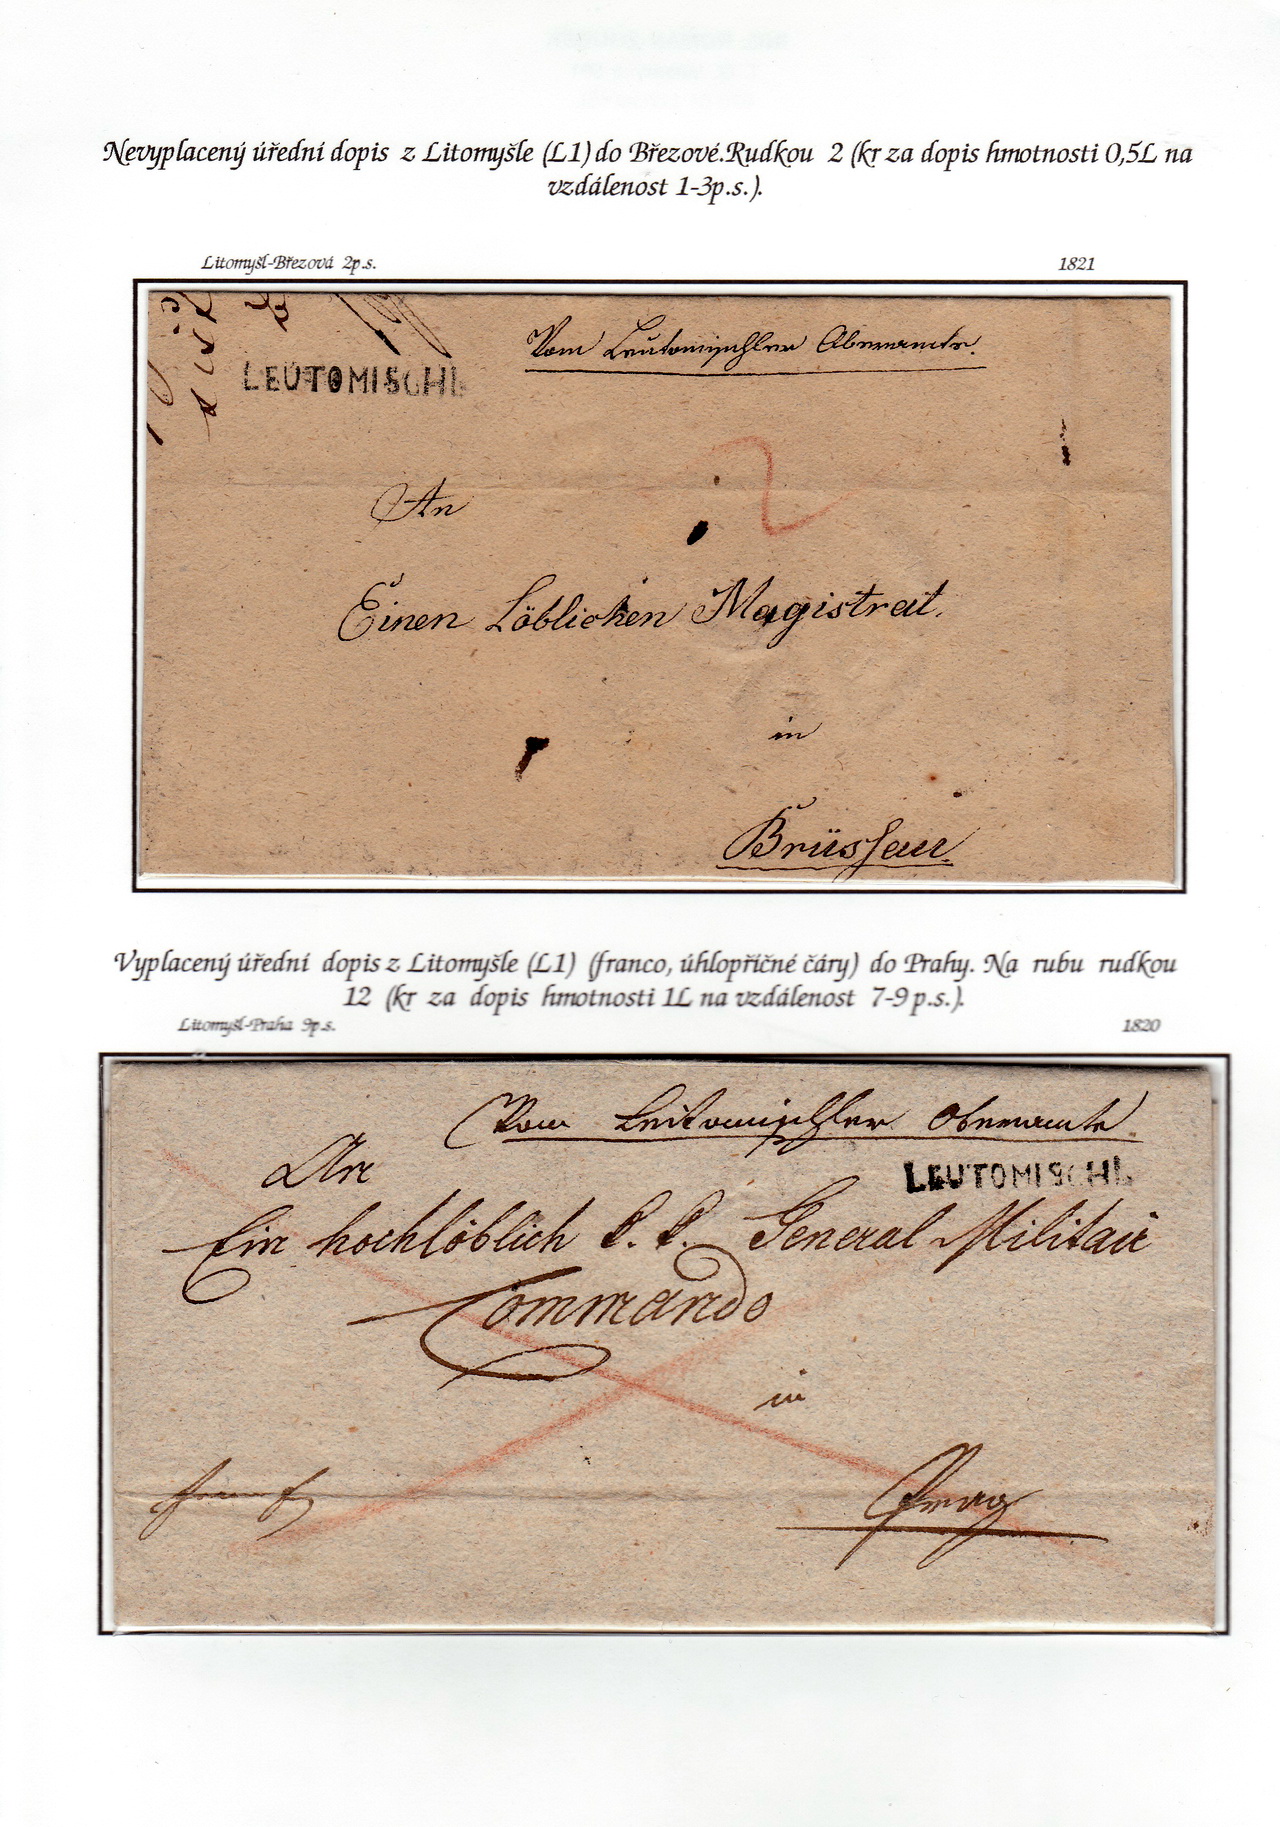 Nevyplacený úřední dopis z Litomyšle (L1) do Březové.Rudkou 2 (kr za dopis hmotnosti 0,5L na
vzdálenost 1-3p.s.).
Litomyšl-Březová 2p.s.
1821
Vom Leutomischler Oberamte.
LEUTOMISCHL
2
An
Einen Löblichen Magistrat.
in
Brüssau
Vyplacený úřední dopis z Litomyšle (L1) (franco, úhlopříčné čáry) do Prahy. Na rubu rudkou
12 (kr za dopis hmotnosti 1L na vzdálenost 7-9 p.s.).
Litomyšl-Praha 9p.s.
1820
Vom Leitomischler Oberamte
An
LEUTOMISCHL
Ein hochlöblich k. k. General Militair
Commando
in
Prag